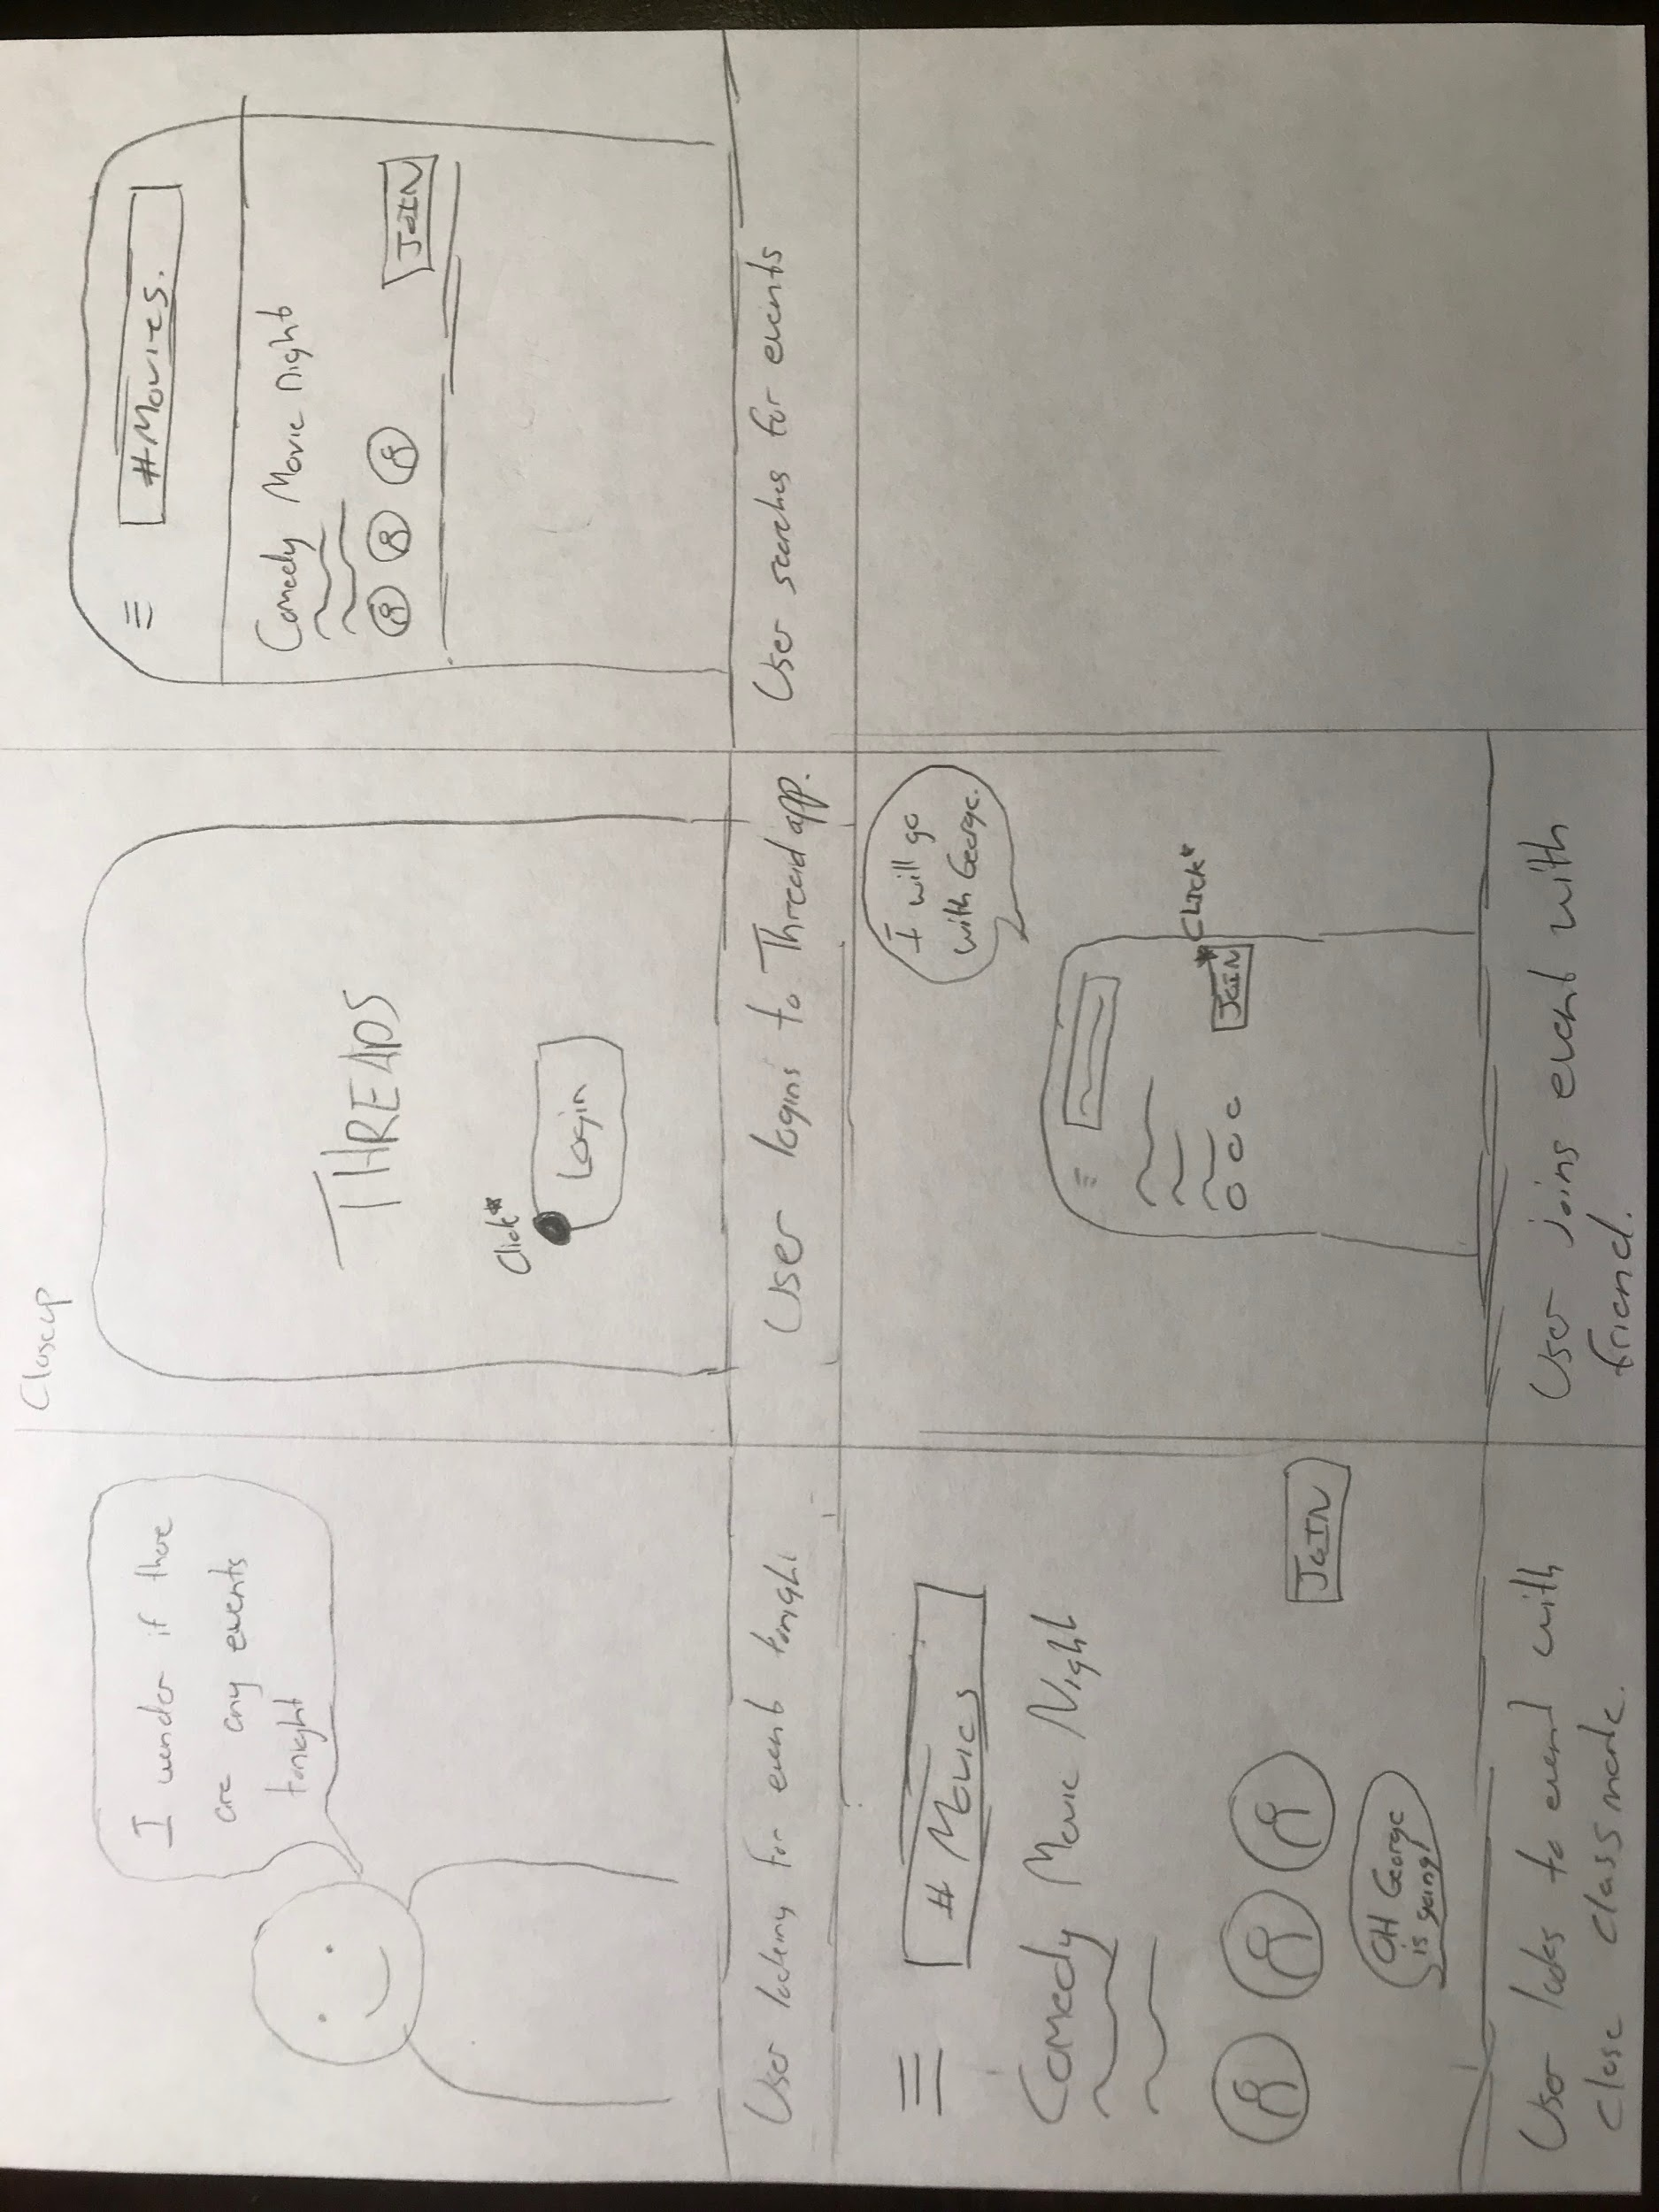 I wonder if there
are any events
tonight
User looking for event tonight
Closeup
THREADS
Click*
Login
User logins to Thread app.
#Movies.
Comedy Movie night
JOIN
User searches for events
# Movies
Comedy Movie Night
JOIN
OH George
is going!
User looks to event with
close classmate.
I will go
with George.
CLICK*
JOIN
User joins event with
friend.